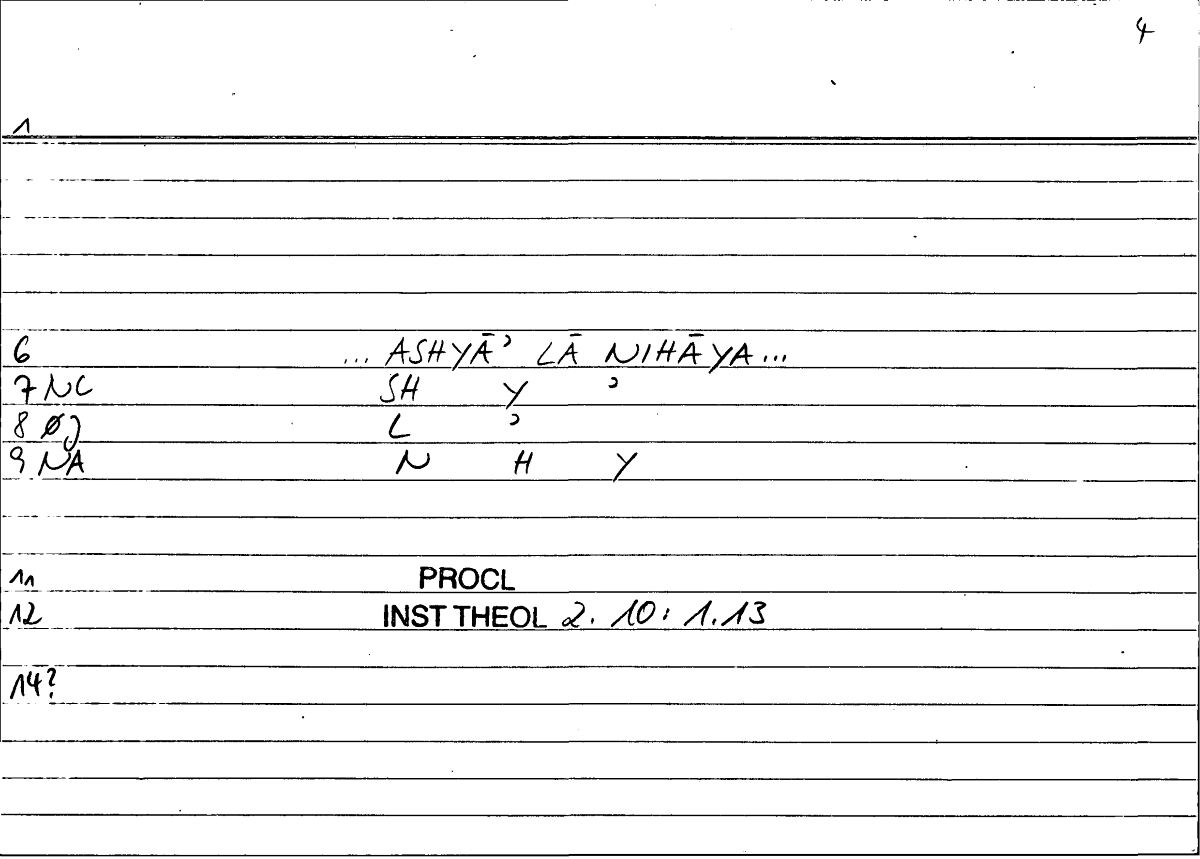 4
1
6 ... ASHYĀʾ LĀ NIHĀYA ...
7 NC SH Y ʾ
8 ØJ L ʾ
9 NA N H Y
11 PROCL
12 INST THEOL 2. 10: 1.13
14?